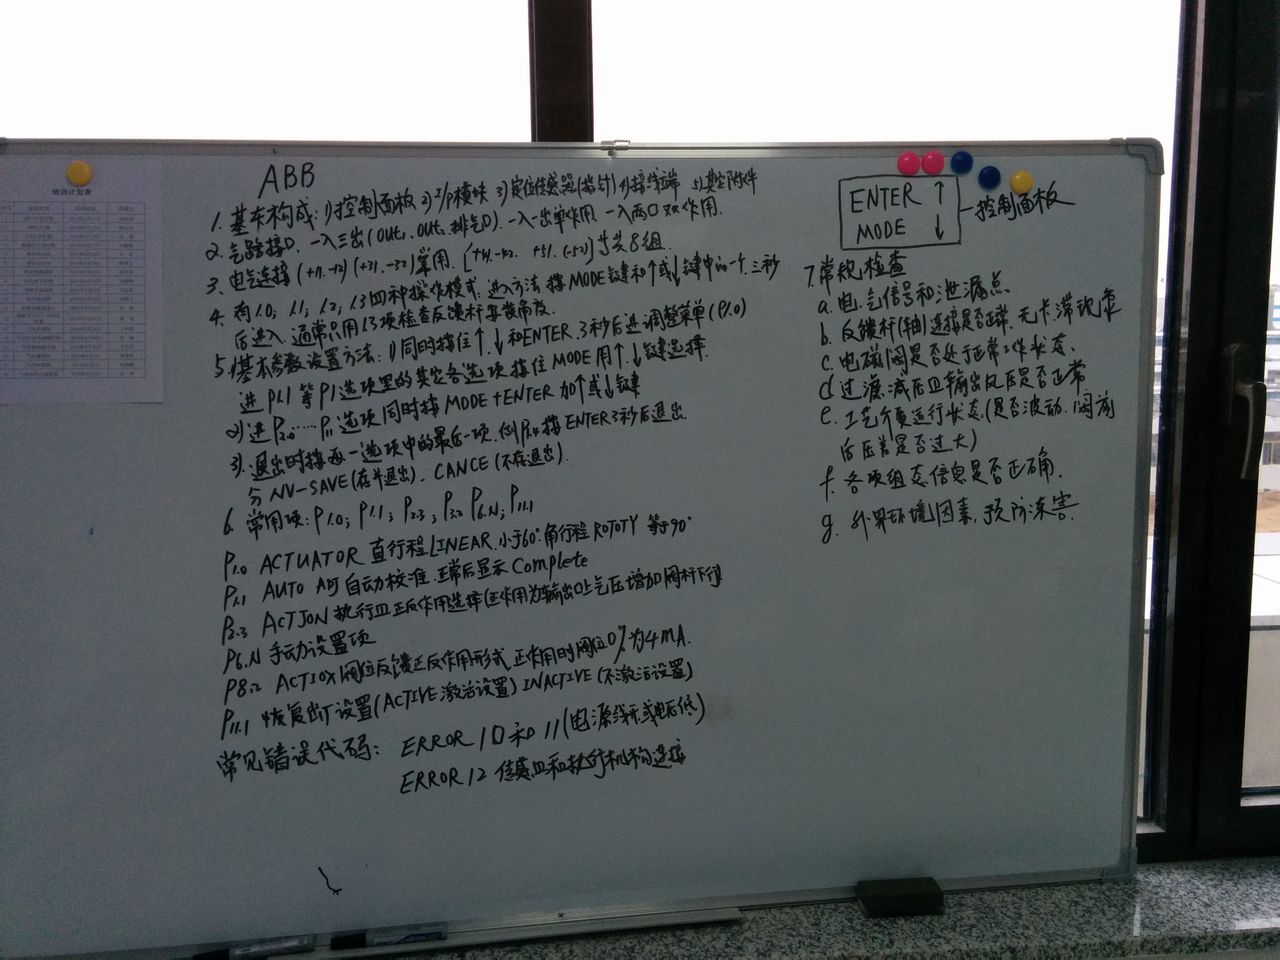 培训计划表
ABB
1. 基本构成: 1)控制面板 2) I/P模块 3) 定位传感器(指针) 4)接线端 5)其它附件
2. 气路接口. 一入三出(OUT1、OUT2、排气口). 一入一出单作用, 一入两口双作用.
3. 电气连接 (+11.-12) (+31.-32) 常用. [+41.-42. +51.(-52)] 共8组.
4. 有1.0; 1.1; 1.2; 1.3四种操作模式; 进入方法 按MODE键和↑或↓键中的一个. 三秒
后进入. 通常只用1.3项检查反馈杆安装角度
5. 1)基本参数设置方法: 1)同时按住↑、↓和ENTER. 3秒后进调整菜单(P1.0)
进P1.1等P1选项里的其它各选项按住MODE用↑、↓键选择.
2)进P2.0……P11选项同时按MODE+ENTER加↑或↓键
3). 退出时按每一选项中的最后一项. 例P3.4按ENTER 3秒后退出.
分NV-SAVE(存并退出). CANCE(不存退出).
6. 常用项: P1.0; P1.1; P2.3; P3.2 P6.N; P11.1
P1.0 ACTUATOR 直行程LINEAR. 小于60° 角行程ROTOTY 等于90°
P1.1 AUTO ADJ 自动校准. 正常后显示Complete
P2.3 ACTJON 执行器正反作用选择(正作用为输出口1气压增加阀杆下行
P6.N 手动设置项
P8.2 ACTIOX 阀位反馈正反作用形式 正作用时阀位0%为4mA.
P11.1 恢复出厂设置(ACTIVE 激活设置) INACTIVE (不激活设置)
常见错误代码: ERROR 10和11(电源线形或电压低)
ERROR 12 传感器和执行机构连接
ENTER ↑
MODE ↓
控制面板
7. 常规检查
a. 电、气信号和泄漏点
b. 反馈杆(轴)连接是否正常. 无卡、滞现象
c. 电磁阀是否处于正常工作状态、
d 过滤减压器输出反压是否正常
e. 工艺介质运行状态(是否波动. 阀前
后压差是否过大)
f. 各项组态信息是否正确.
g. 外界环境因素, 预防冻害.